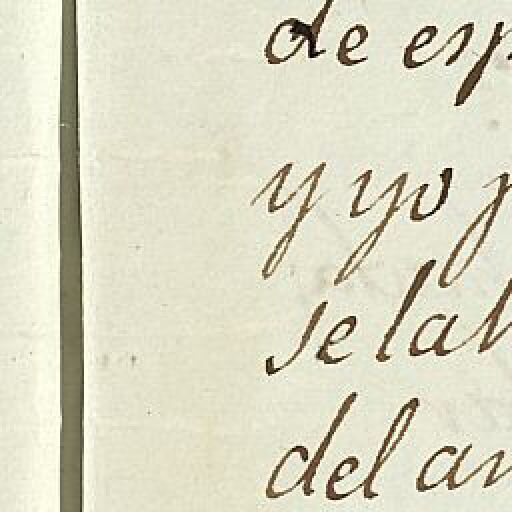 de esp
y yo p
se lah
del an